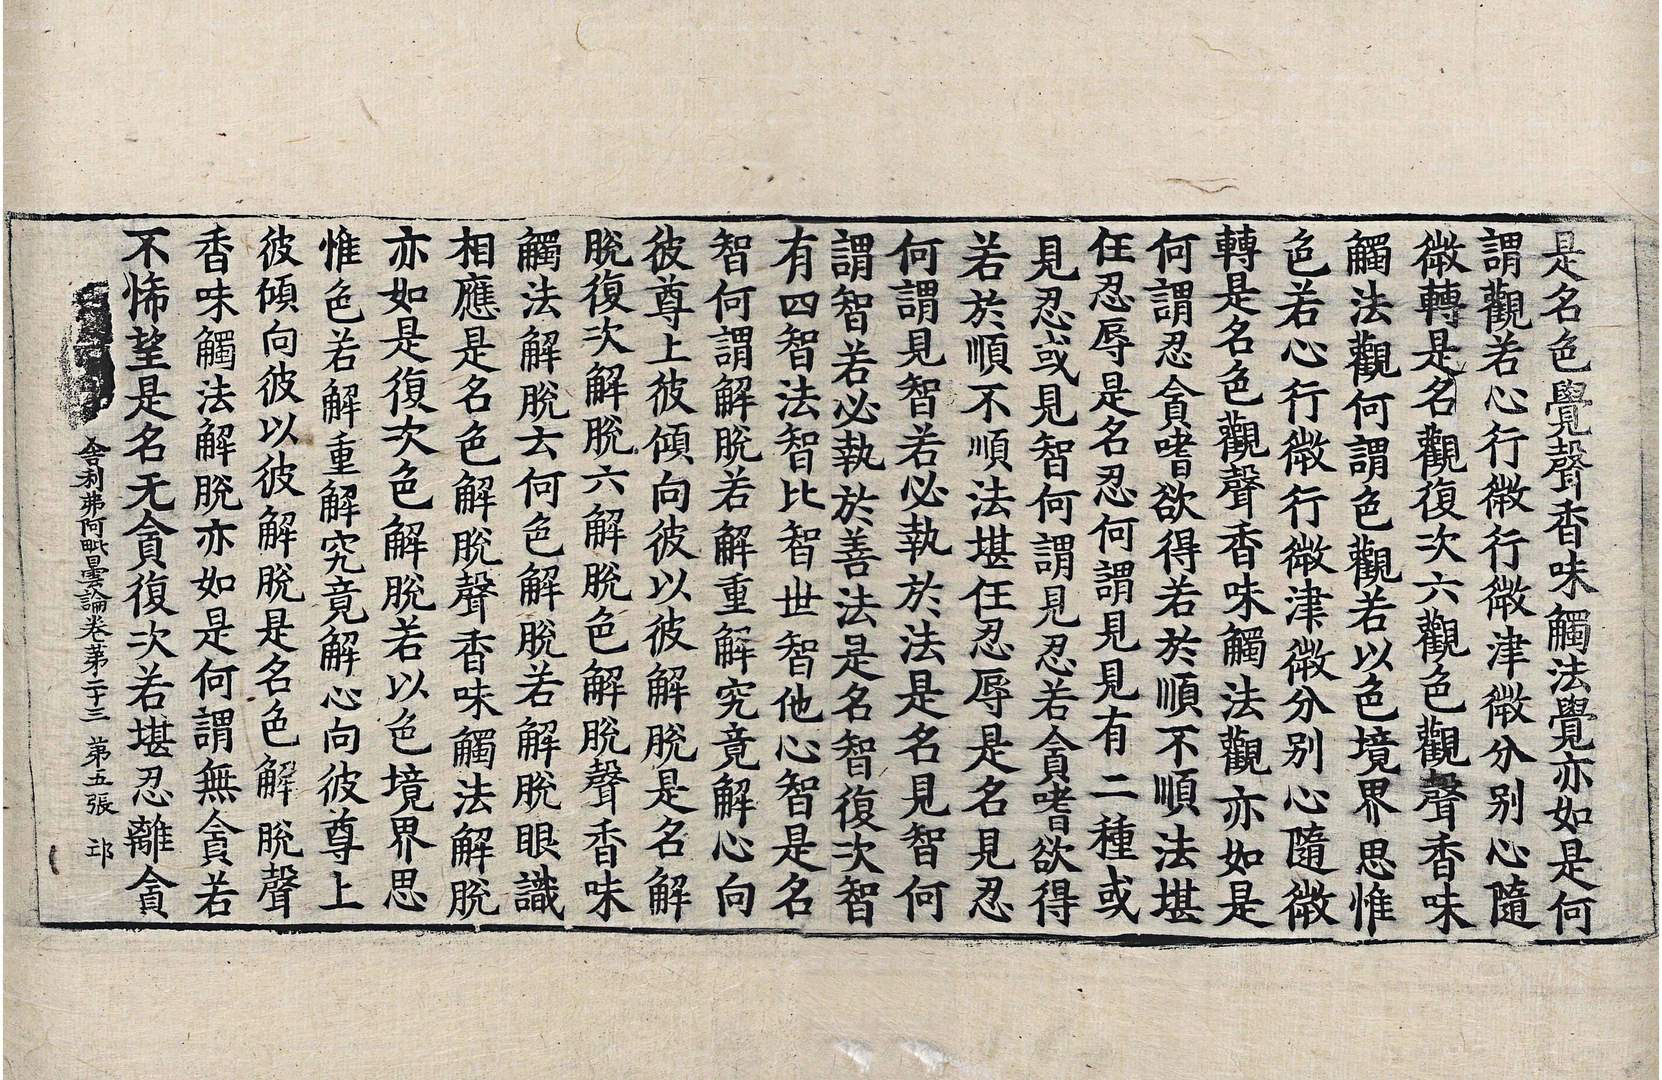 是名色覺聲香味觸法覺亦如是何
謂觀若心行微行微津微分別心隨
微轉是名觀復次六觀色觀聲香味
觸法觀何謂色觀若以色境界思惟
色若心行微行微津微分別心隨微
轉是名色觀聲香味觸法觀亦如是
何謂忍貪嗜欲得若於順不順法堪
任忍辱是名忍何謂見見有二種或
見忍或見智何謂見忍若貪嗜欲得
若於順不順法堪任忍辱是名見忍
何謂見智若必執於法是名見智何
謂智若必執於善法是名智復次智
有四智法智比智世智他心智是名
智何謂解脫若解重解究竟解心向
彼尊上彼傾向彼以彼解脫是名解
脫復次解脫六解脫色解脫聲香味
觸法解脫云何色解脫若解脫眼識
相應是名色解脫聲香味觸法解脫
亦如是復次色解脫若以色境界思
惟色若解重解究竟解心向彼尊上
彼傾向彼以彼解脫是名色解脫聲
香味觸法解脫亦如是何謂無貪若
不悕望是名无貪復次若堪忍離貪
舍利弗阿毗曇論卷第二十三 第五張 邛